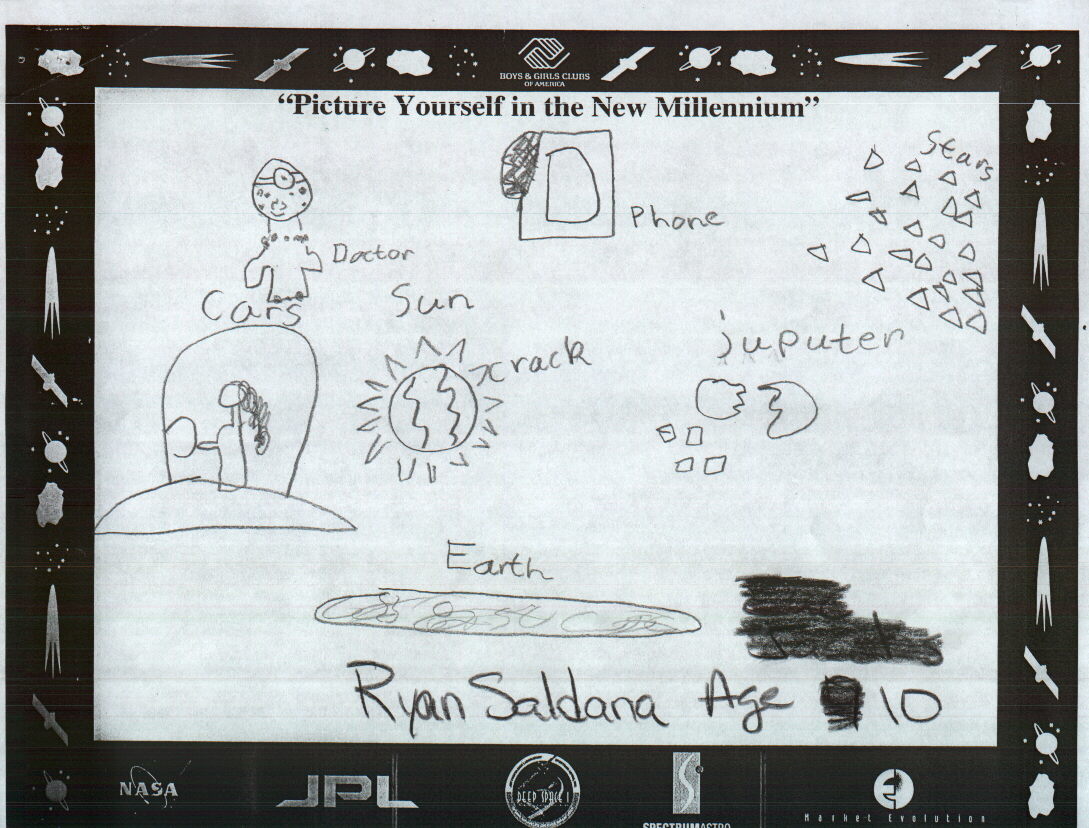 BOYS & GIRLS CLUBS
OF AMERICA
“Picture Yourself in the New Millennium”
Stars
Phone
Doctor
Cars
Sun
crack
juputer
Earth
Ryan Saldana Age 10
NASA
JPL
DEEP SPACE 1
SPECTRUMASTRO
Market Evolution